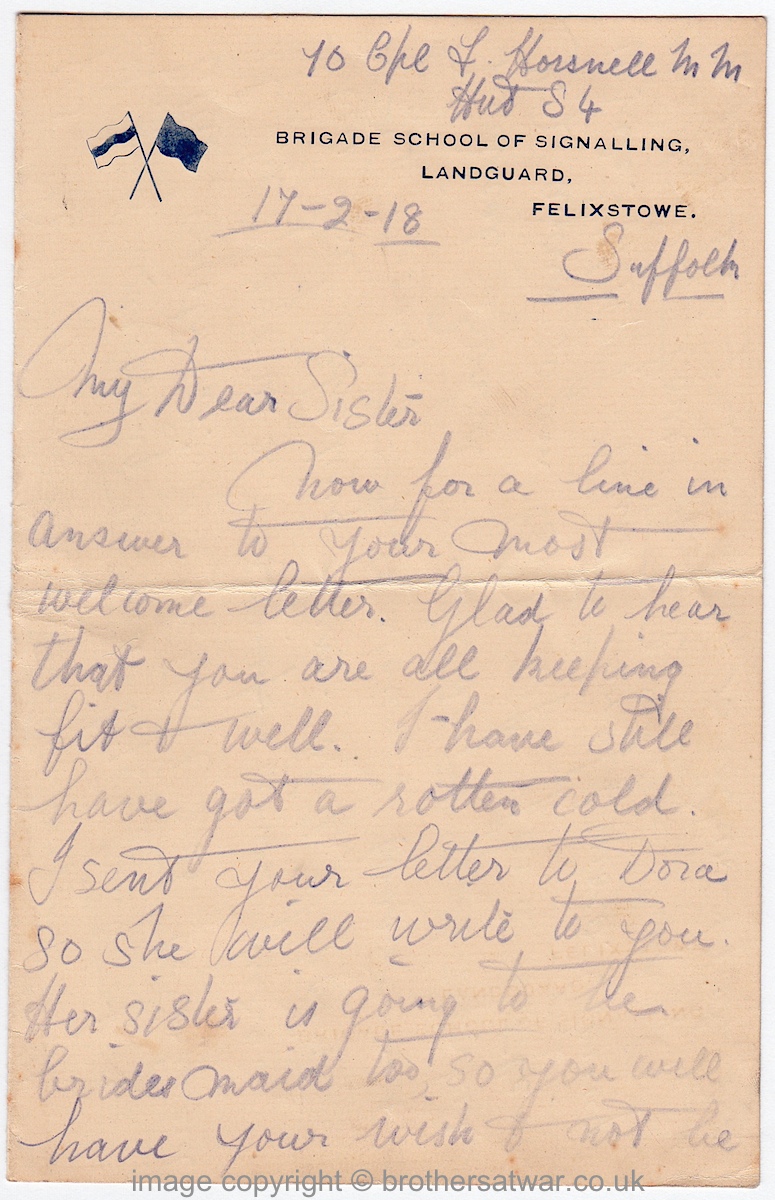 70 Cpl F. Horsnell M M
Hut S 4
BRIGADE SCHOOL OF SIGNALLING,
LANDGUARD,
FELIXSTOWE.
17-2-18
Suffolk
My Dear Sister
Now for a line in
answer to your most
welcome letter. Glad to hear
that you are all keeping
fit & well. I have still
have got a rotten cold.
I sent your letter to Dora
so she will write to you.
Her sister is going to be
bridesmaid too, so you will
have your wish & not be
image copyright © brothersatwar.co.uk